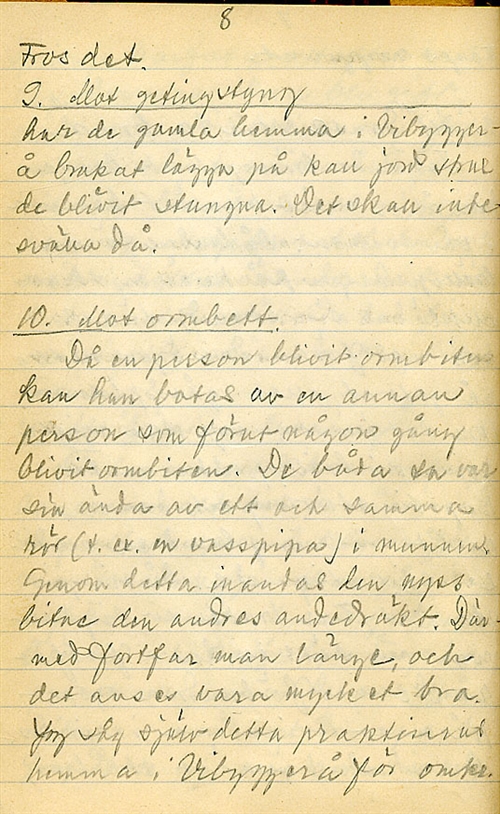 8
Tros det.
9. Mot getingstyng
har de gamla hemma i Vibygger-
å brukat lägga på kall jord strax
de blivit stungna. Det skall inte
svälla då.
10. Mot ormbett.
Då en person blivit ormbiten
kan han botas av en annan
person som förut någon gång
blivit ormbiten. De båda ta var
sin ända av ett och samma
rör (t. ex. en vasspipa) i munnen.
Genom detta inandas den nyss
bitne den andres andedräkt. Där-
med fortfar man länge, och
det anses vara mycket bra.
Jag såg själv detta praktiseras
hemma i Vibyggerå för omkr.